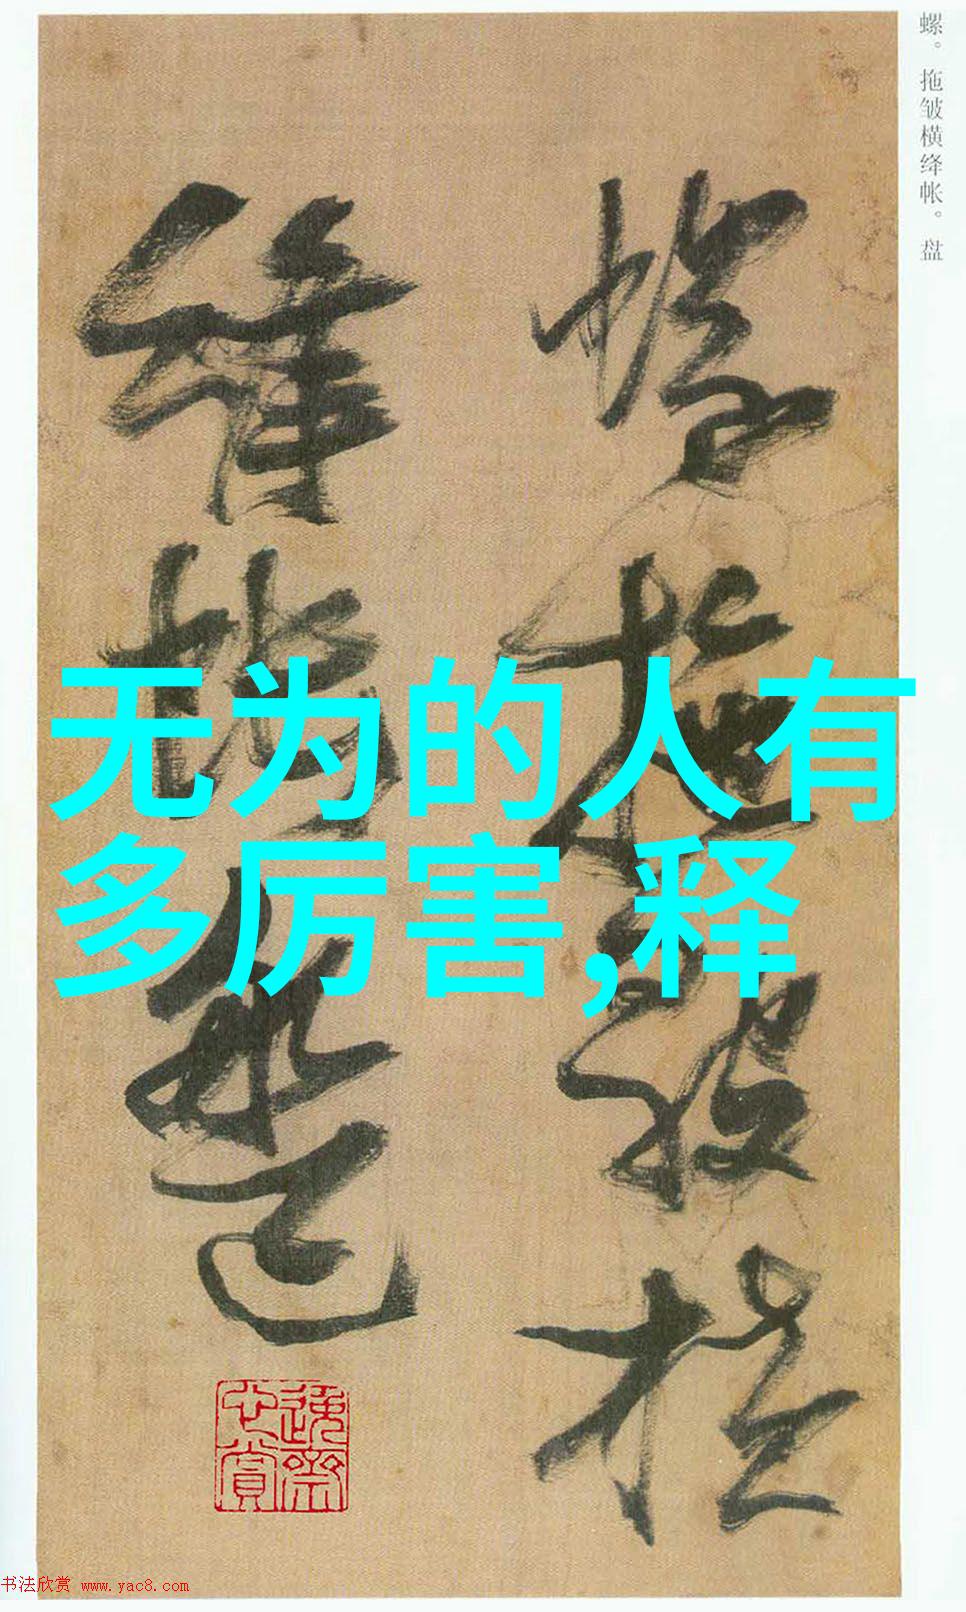 螺。拖皱横绛帐。盘
螺拖皱横
绛帐盘
无为的人有
多厉害,释
书法欣赏 www.yac8.com